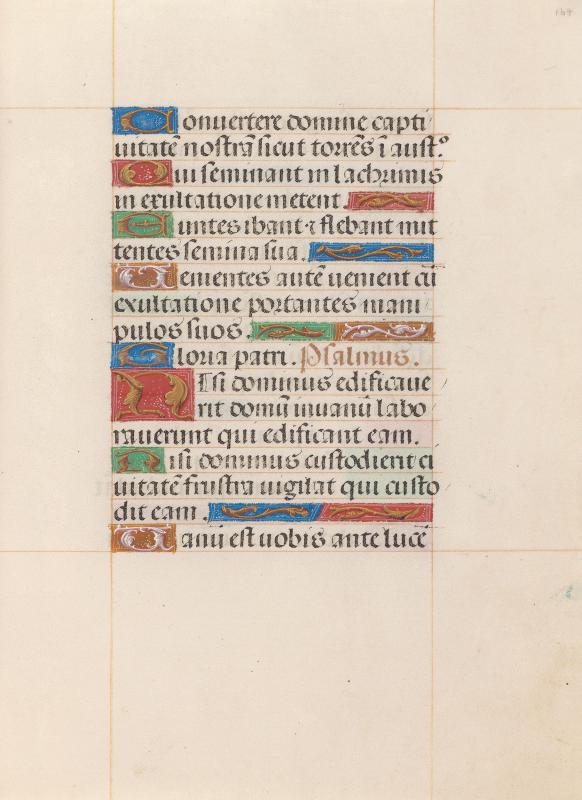 164
Conuertere domine capti
uitatē nostrā sicut torrēs ī aust.º
Qui seminant in lachrimis
in exultatione metent.
Euntes ibant ⁊ flebant mit
tentes semina sua.
Uenientes autē uenient cū
exultatione portantes mani
pulos suos.
Gloria patri. Psalmus.
NIsi dominus edificaue
rit domū inuanū labo
rauerunt qui edificant eam.
Nisi dominus custodierit ci
uitatē frustra uigilat qui custo
dit eam.
Uanū est uobis ante lucē